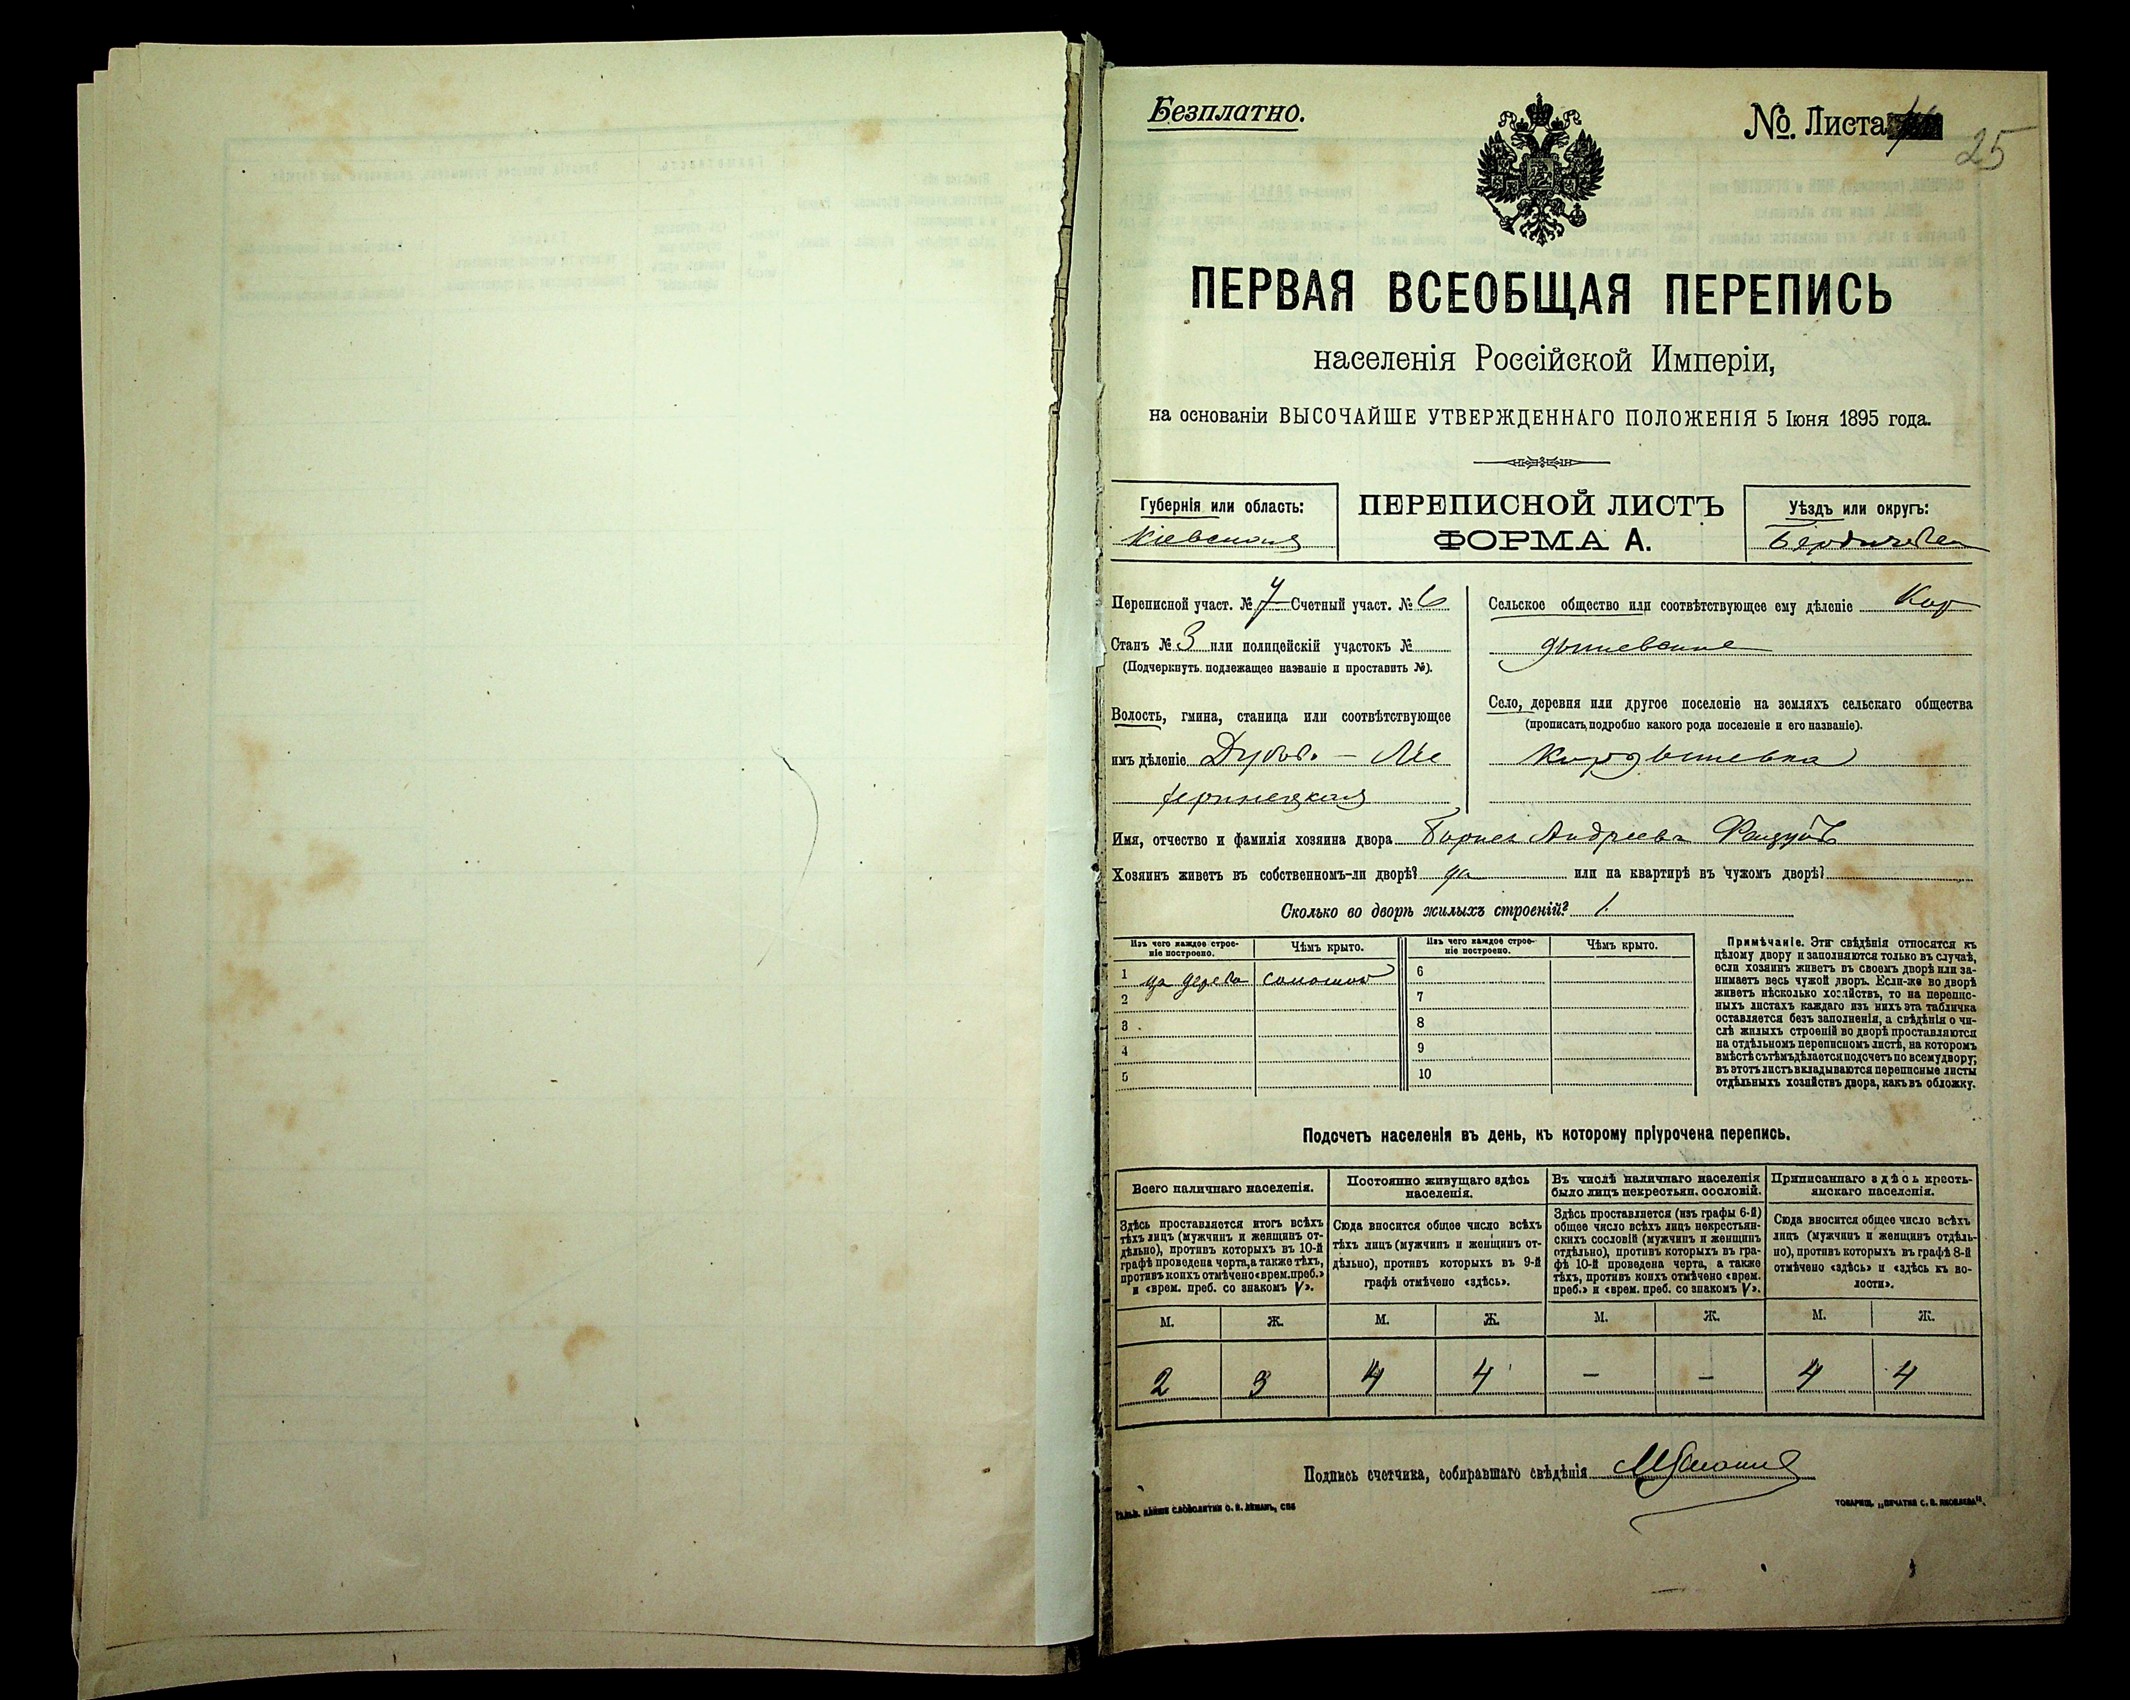 Безплатно.
№ Листа
25
ПЕРВАЯ ВСЕОБЩАЯ ПЕРЕПИСЬ
населенія Россійской Имперіи,
на основаніи ВЫСОЧАЙШЕ УТВЕРЖДЕННАГО ПОЛОЖЕНІЯ 5 Іюня 1895 года.
Губернія или область:
Кіевская
ПЕРЕПИСНОЙ ЛИСТЪ
ФОРМА А.
Уѣздъ или округъ:
Бердичевск
Переписной участ. № 7 Счетный участ. № 6
Станъ № 3 или полицейскій участокъ №
(Подчеркнуть подлежащее названіе и проставить №).
Волость, гмина, станица или соотвѣтствующее
имъ дѣленіе
Сельское общество или соотвѣтствующее ему дѣленіе Кор
дышевское
Село, деревня или другое поселеніе на земляхъ сельскаго общества
(прописать подробно какого рода поселеніе и его названіе).
Кордышевка
Имя, отчество и фамилія хозяина двора Борисъ Андреевъ
Хозяинъ живетъ въ собственномъ-ли дворѣ? да или на квартирѣ въ чужомъ дворѣ?
Сколько во дворѣ жилыхъ строеній? 1.
Изъ чего каждое строе-
ніе построено.
Чѣмъ крыто.
1 дерева соломой
2
3
4
5
Изъ чего каждое строе-
ніе построено.
Чѣмъ крыто.
6
7
8
9
10
Примѣчаніе. Эти свѣдѣнія относятся къ
цѣлому двору и заполняются только въ случаѣ,
если хозяинъ живетъ въ своемъ дворѣ или за-
нимаетъ весь чужой дворъ. Если-же во дворѣ
живетъ нѣсколько хозяйствъ, то на перепис-
ныхъ листахъ каждаго изъ нихъ эта табличка
оставляется безъ заполненія, а свѣдѣнія о чи-
слѣ жилыхъ строеній во дворѣ проставляются
на отдѣльномъ переписномъ листѣ, на которомъ
вмѣстѣ съ тѣмъ дѣлается подсчетъ по всему двору;
въ этотъ листъ вкладываются переписные листы
отдѣльныхъ хозяйствъ двора, какъ въ обложку.
Подсчетъ населенія въ день, къ которому пріурочена перепись.
Всего наличнаго населенія.
Здѣсь проставляется итогъ всѣхъ
тѣхъ лицъ (мужчинъ и женщинъ от-
дѣльно), противъ которыхъ въ 10-й
графѣ проведена черта, а также тѣхъ,
противъ коихъ отмѣчено «врем. преб.»
и «врем. преб. со знакомъ V».
М. Ж.
2 3
Постоянно живущаго здѣсь
населенія.
Сюда вносится общее число всѣхъ
тѣхъ лицъ (мужчинъ и женщинъ от-
дѣльно), противъ которыхъ въ 9-й
графѣ отмѣчено «здѣсь».
М. Ж.
4 4
Въ числѣ наличнаго населенія
было лицъ некрестьян. сословій.
Здѣсь проставляется (изъ графы 6-й)
общее число всѣхъ лицъ некрестьян-
скихъ сословій (мужчинъ и женщинъ
отдѣльно), противъ которыхъ въ гра-
фѣ 10-й проведена черта, а также
тѣхъ, противъ коихъ отмѣчено «врем.
преб.» и «врем. преб. со знакомъ V».
М. Ж.
– –
Приписаннаго здѣсь кресть-
янскаго населенія.
Сюда вносится общее число всѣхъ
лицъ (мужчинъ и женщинъ отдѣль-
но), противъ которыхъ въ графѣ 8-й
отмѣчено «здѣсь» и «здѣсь къ во-
лости».
М. Ж.
4 4
Подпись счетчика, собиравшаго свѣдѣнія